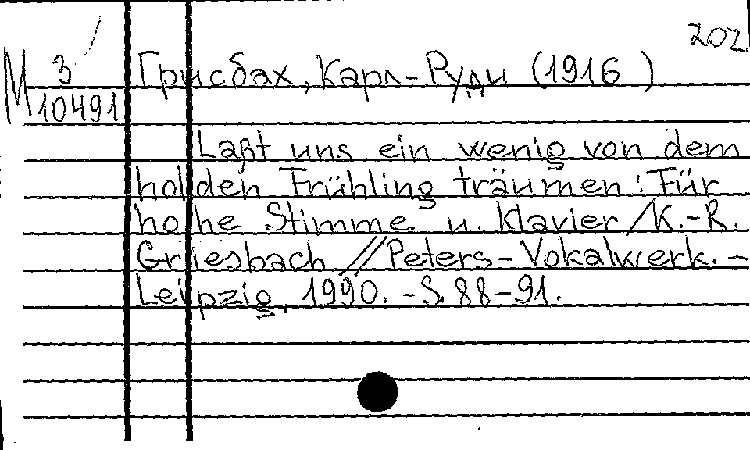 202
М 3
10491
Грисбах, Карл-Руди (1916 )
Laßt uns ein wenig von dem
holden Frühling träumen: Für
hohe Stimme u. Klavier / K.-R.
Griesbach // Peters-Vokalwerk. -
Leipzig, 1990. - S. 88-91.